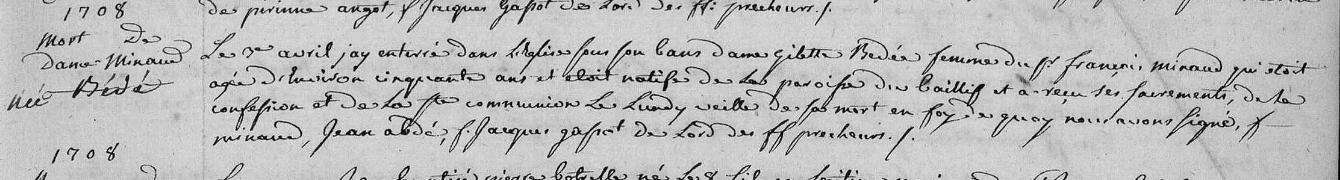 1708
de perinne angot, f Jacques Gassot de Lord des ff: precheurs ./.
Mort De
Dame Minaud
Née Bédé
Le 3e avril jay enterré dans L'eglise sous son banc dame gilette Bedée femme du Sr françois minaud qui etoit
agée d'Environ cinquante ans et etoit natife de La paroisse du baillif et a reçu ses sacrements, de la
confession et de La ste communion Le Lundy veille de sa mort en foy de quoy nous avons signé, f
minaud, Jean abdé, f. Jacques gassot de Lord des ff precheurs ./.
1708